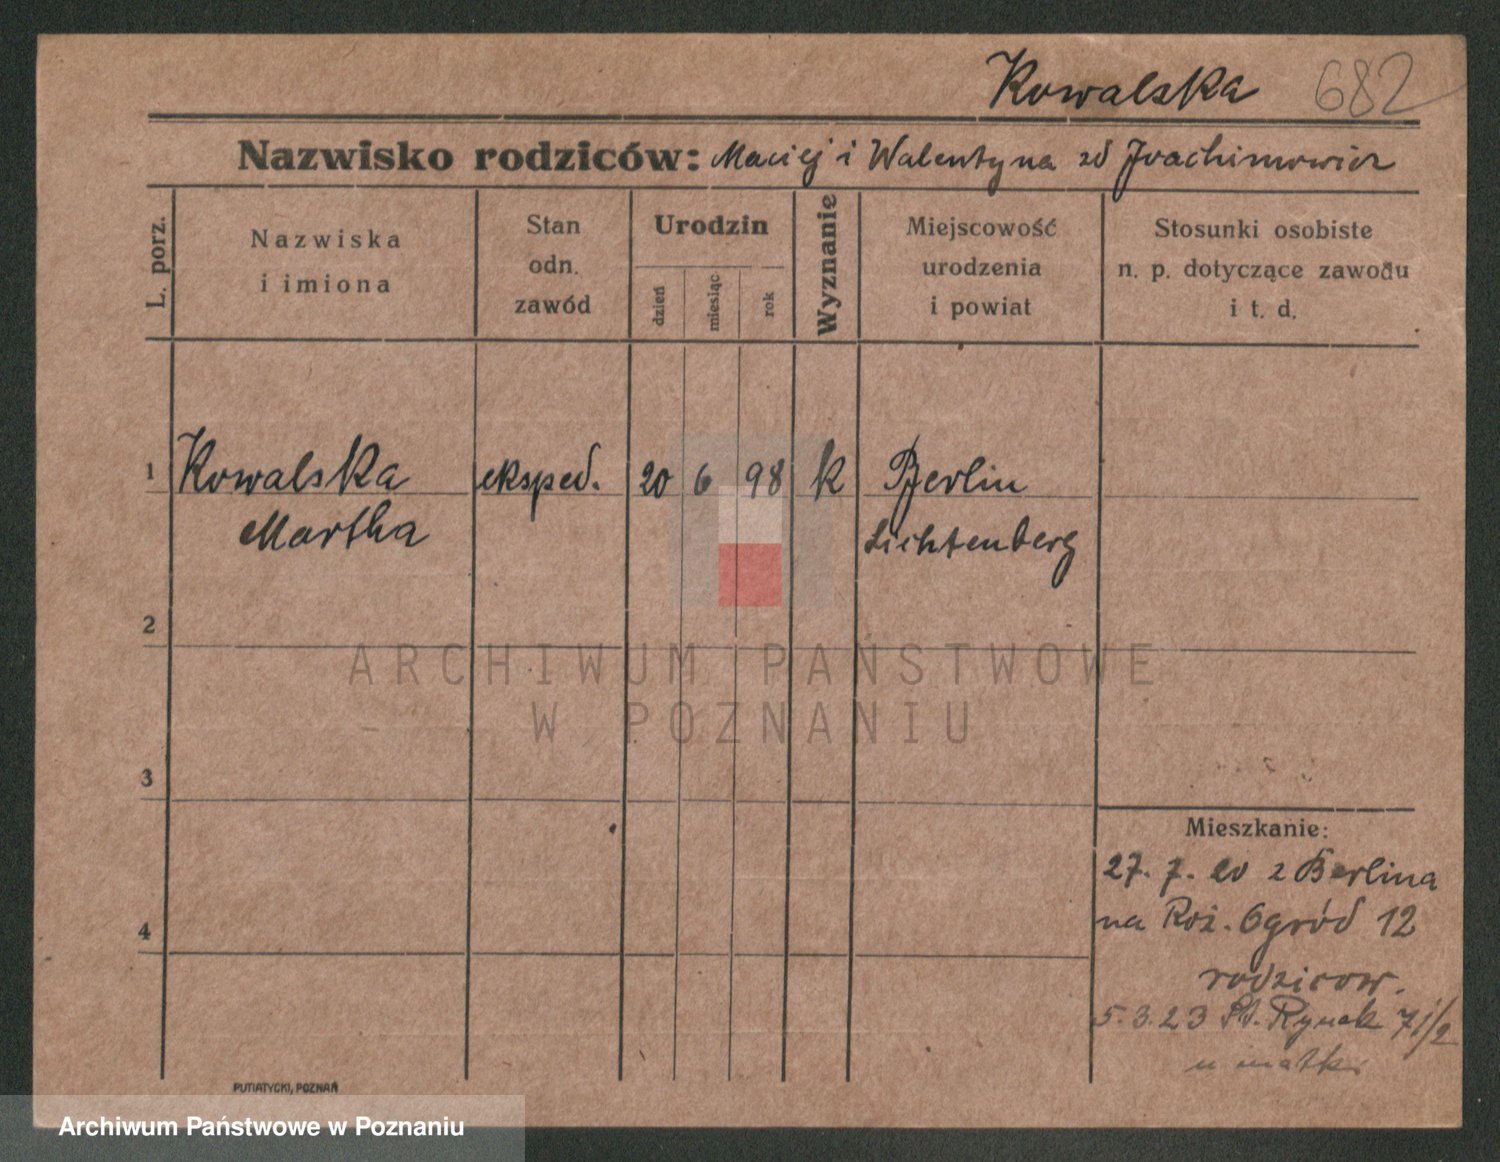 Kowalska 682
Nazwisko rodziców: Maciej i Walentyna zd Joachimowicz
L. porz.
Nazwiska
i imiona
Stan
odn.
zawód
Urodzin
dzień
miesiąc
rok
Wyznanie
Miejscowość
urodzenia
i powiat
Stosunki osobiste
n. p. dotyczące zawodu
i t. d.
1 Kowalska eksped. 20 6 98 k Berlin
Martha Lichtenberg
2
ARCHIWUM PAŃSTWOWE
W POZNANIU
3
Mieszkanie:
27. 7. 20 z Berlina
na Roż. Ogród 12
4
rodzicow.
5.3.23 St. Rynek 71/2
u matki
PUTIATYCKI, POZNAŃ
Archiwum Państwowe w Poznaniu